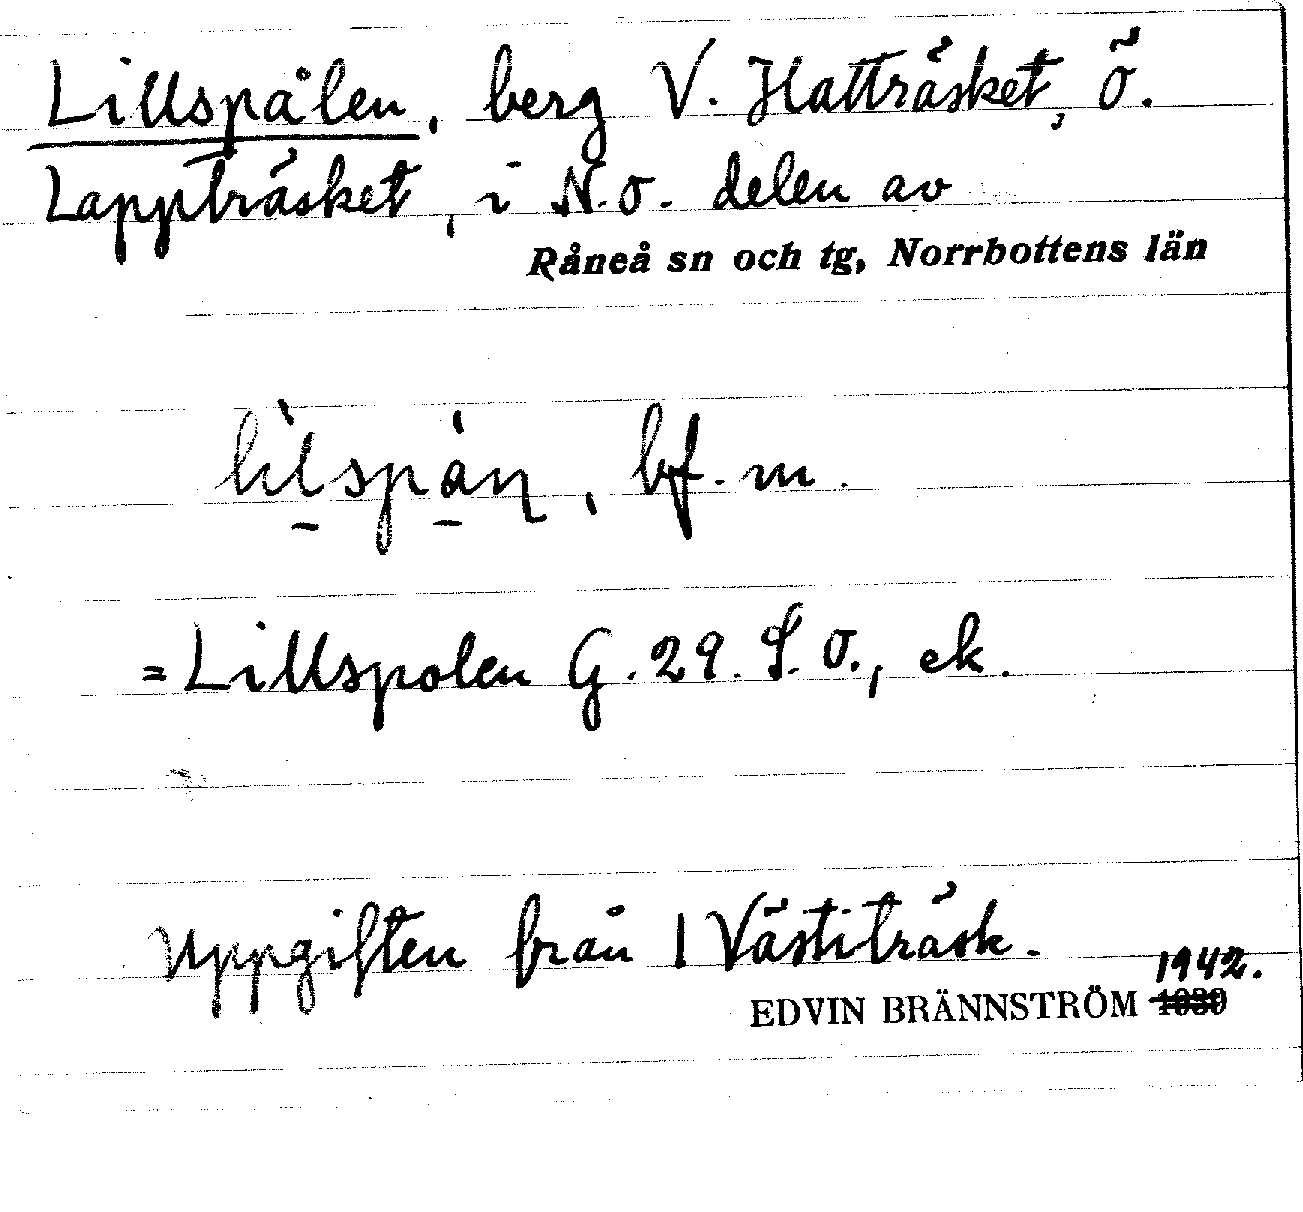 Lillspålen, berg V. Hatträsket, Ö.
Lappträsket, i N.O. delen av
Råneå sn och tg, Norrbottens län
bf. m.
= Lillspolen G. 29. S.O., ek.
Uppgiften från 1 Västiträsk.
1942.
EDVIN BRÄNNSTRÖM 1939